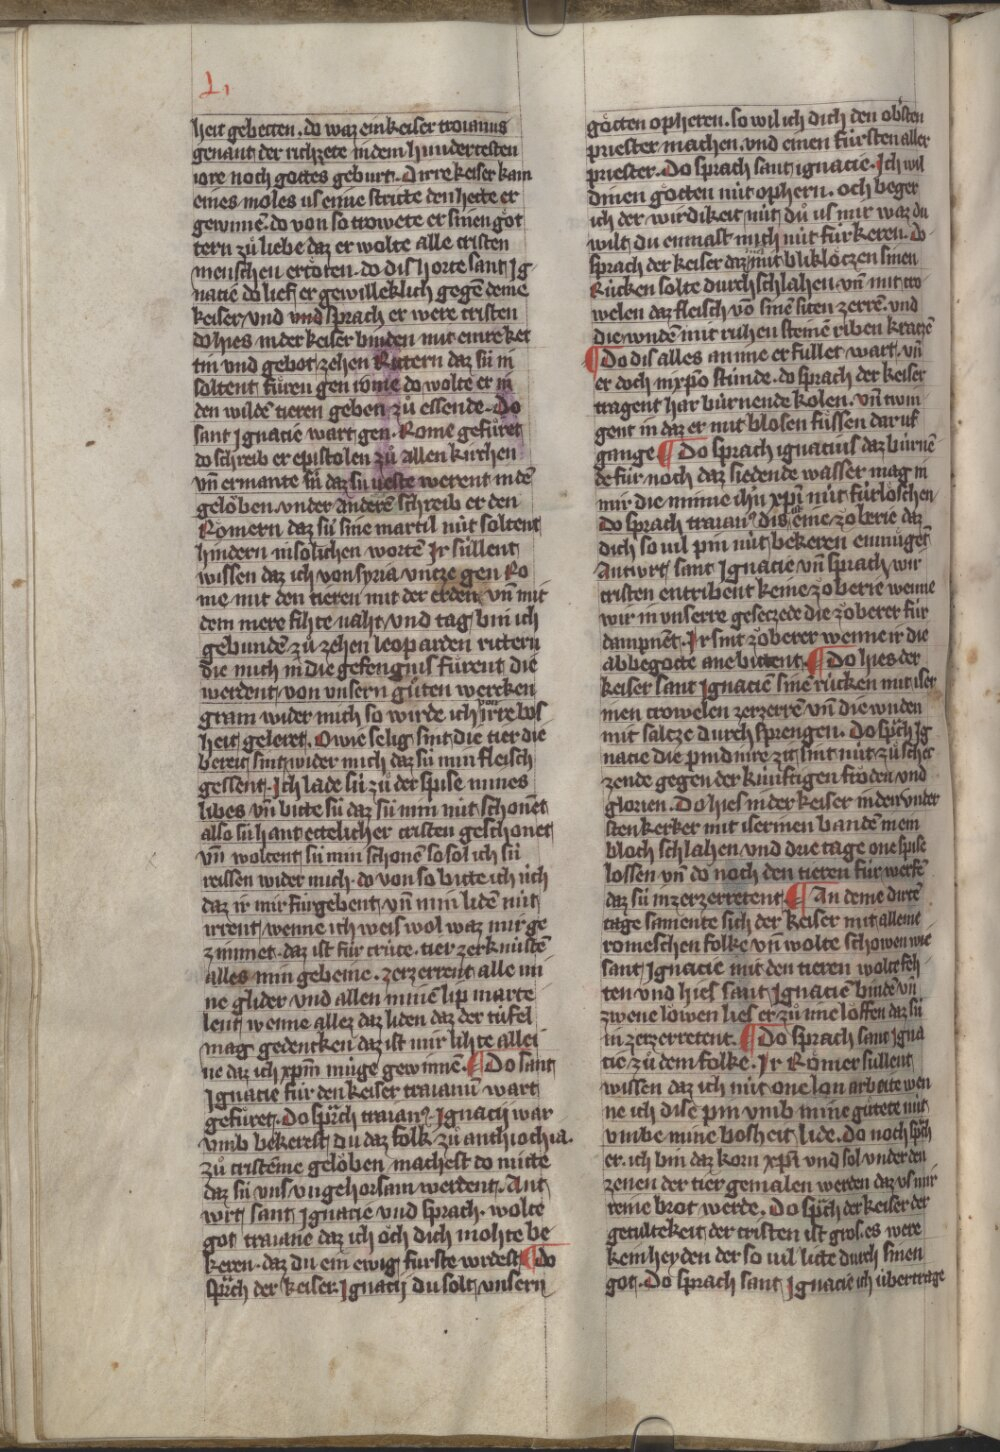 L,
heit gebetten. do waz ein keiser troianus
genant der richzete in dem hundertesten
iore noch gottes geburt. Dirre keiser kam
eines moles us eime stritte den hette er
gewunnē. do von so trowete er sinen göt
tern zů liebe daz er wolte alle cristen
menschen ertöten. do dis horte sant Ig
natie do lief er gewilleklich gegē deme
keiser vnd vnd sprach er were cristen
do hies in der keiser binden mit eime ket
tin vnd gebot zehen Rittern daz sü in
soltent fůren gen rome do wolte er in
den wildē tieren geben zů essende. Do
sant Ignatie wart gen. Rome gefůret
do schreib er epistolen zů allen kirchen
vn̄ ermante sü daz sü veste werent in dē
gelöben. vnder anderen schreib er den
Römern daz sü sine martil nüt soltent
hindern in sölichen wortē Ir süllent
wissen daz ich von syria vntze gen Ro
me mit den tieren mit der erden vn̄ mit
dem mere fihte naht vnd tag bin ich
gebundē zů zehen leoparden rittern
die mich in die gefengnis fůrent die
werdent von vnsern gůten wercken
gram wider mich so wirde ich von irre bos
heit geleret. O wie selig sint die tier die
bereit sint wider mich daz sü min fleisch
gessent. Ich lade sü zů der spise mines
libes vn̄ bitte sü daz sü min nüt schonēt
also sü hant ettelicher cristen geschonet
vn̄ woltent sü min schonē so sol ich sü
reissen wider mich. do von so bitte ich üch
daz ir mir fürgebent vn̄ min lidē nüt
irrent wenne ich weis wol waz mir ge
zimmet. daz ist für crütze. tier zerknüstē
alles min gebeine. zerzerrent alle mi
ne glider vnd allen minē lip marte
lent wenne allez daz liden daz der tüfel
mag gedencken daz ist mir lihte allei
ne daz ich xp̄m müge gewinnē. ¶ Do sant
Ignatie für den keiser traianū wart
gefůret. Do sp̄ch traian⁹. Ignatij war
vmb bekerest du daz folk zů anthiochia.
zů cristēme gelöben machest do mitte
daz sü vns vngehorsam werdent. Ant
wrt sant Ignatie vnd sprach. wolte
got traiane daz ich öch dich möhte be
keren. daz du ein ewig fürste wrdest ¶ do
sp̄ch der keiser. Ignatij du solt vnsern
götten opheren. so wil ich dich den obͤsten
priester machen. vnd einen fürsten aller
priester. Do sprach sant ignatie. Ich wil
dinen götten nüt ophern. och beger
ich der wirdikeit nüt dů us mir waz du
wilt du enmaht mich nüt für keren. Do
sprach der keiser daz mā mit bliklötzen sinen
Rücken solte durch schlahen vn̄ mit tro
welen daz fleisch vō sinē siten zerrē. vnd
die wndē mit ruhen steinē riben kratzē
¶ Do dis alles an ime er fullet wart. vn̄
er doch nirpō stünde. do sprach der keiser
tragent har bürnende kolen. vn̄ twin
gent in daz er mit blosen füssen dar uf
gange ¶ Do sprach ignatius daz bürnē
de für noch daz siedende wasser mag in
mir die minne ih̄u xp̄i nüt fürlöschen
do sprach traian⁹ dis ist eine zöberie daz
dich so uil pin nüt bekeren enmügēt
Antwrt sant Ignatie vn̄ sprach wir
cristen entribent keine zöberie wenne
wir in vnserre gesetzede die zöberer für
dampnēt. Ir sint zöberer wenne ir die
abbegötte ane bittent. ¶ Do hies der
keiser sant Ignaciē sinē rücken mit iser
inen trowelen zerzerrē vn̄ die wnden
mit saltze durch sprengen. Do sp̄ch Ig
natie die pin dirre zit sint nüt zů schet
zende gegen der künftigen fröden vnd
glorien. Do hies in der keiser in den vnder
sten kerker mit isernen bandē in ein
bloch schlahen vnd drie tage one spise
lossen vn̄ do noch den tieren für werfē
daz sü in zerzerretent ¶ An deme dirtē
tage samente sich der keiser mit alleme
romeschen folke vn̄ wolte schowen wie
sant Ignacie mit den tieren wolte feh
ten vnd hies sant Ignaciē bindē vn̄
zwene löwen lies er zů ime löffen daz sü
in zerzerretent. ¶ Do sprach sant Igna
tie zů dem folke. Ir Römer süllent
wissen daz ich nüt one lon arbeite wen
ne ich dise pin vmb mine gütete nüt
vmbe mine bosheit lide. do noch sp̄ch
er. ich bin daz korn xp̄i vnd sol vnder den
zenen der tier gemalen werden daz vs mir
reine brot werde. Do sp̄ch der keiser der
getultekeit der cristen ist gros. es were
kein heyden der so uil litte durch sinen
got. Do sprach sant Ignatie ich übertrage